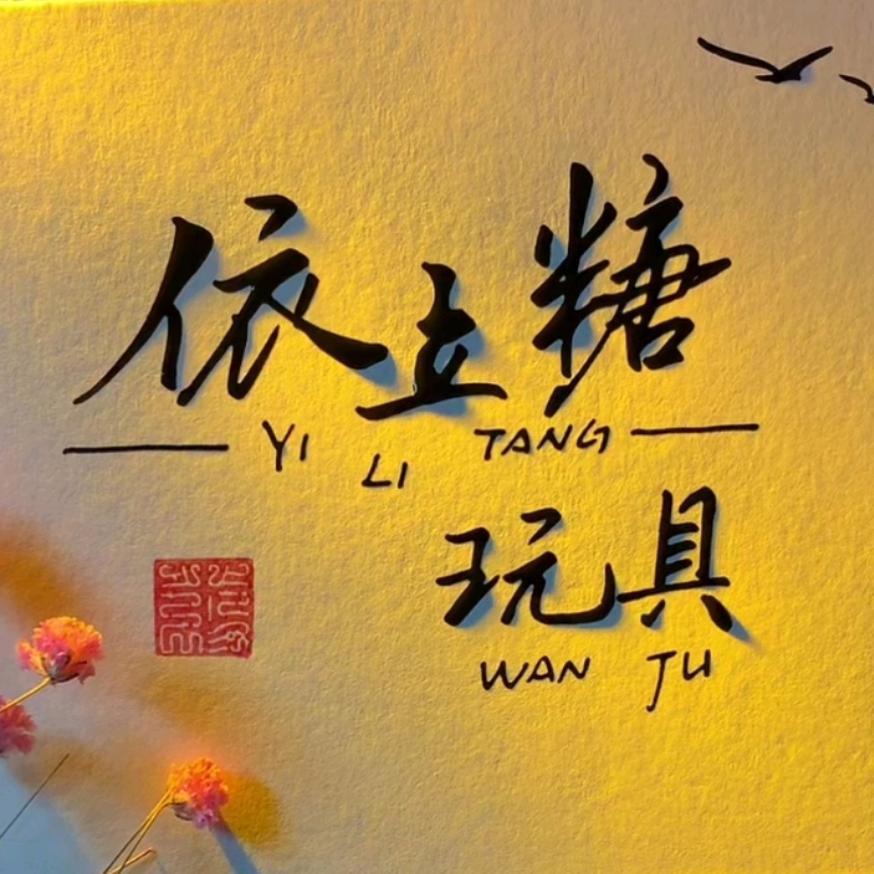 依立糖
YI LI TANG
玩具
WAN JU